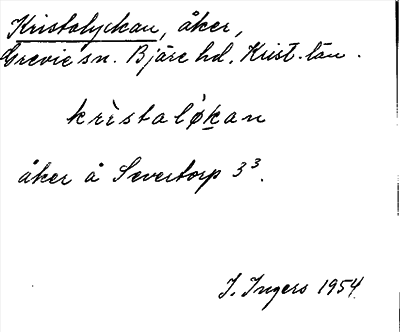 Kristolyckan, åker,
Grevie sn. Bjäre hd. Krist. län.
krìstalǿkan
åker å Severtorp 3³.
I. Ingers 1954.